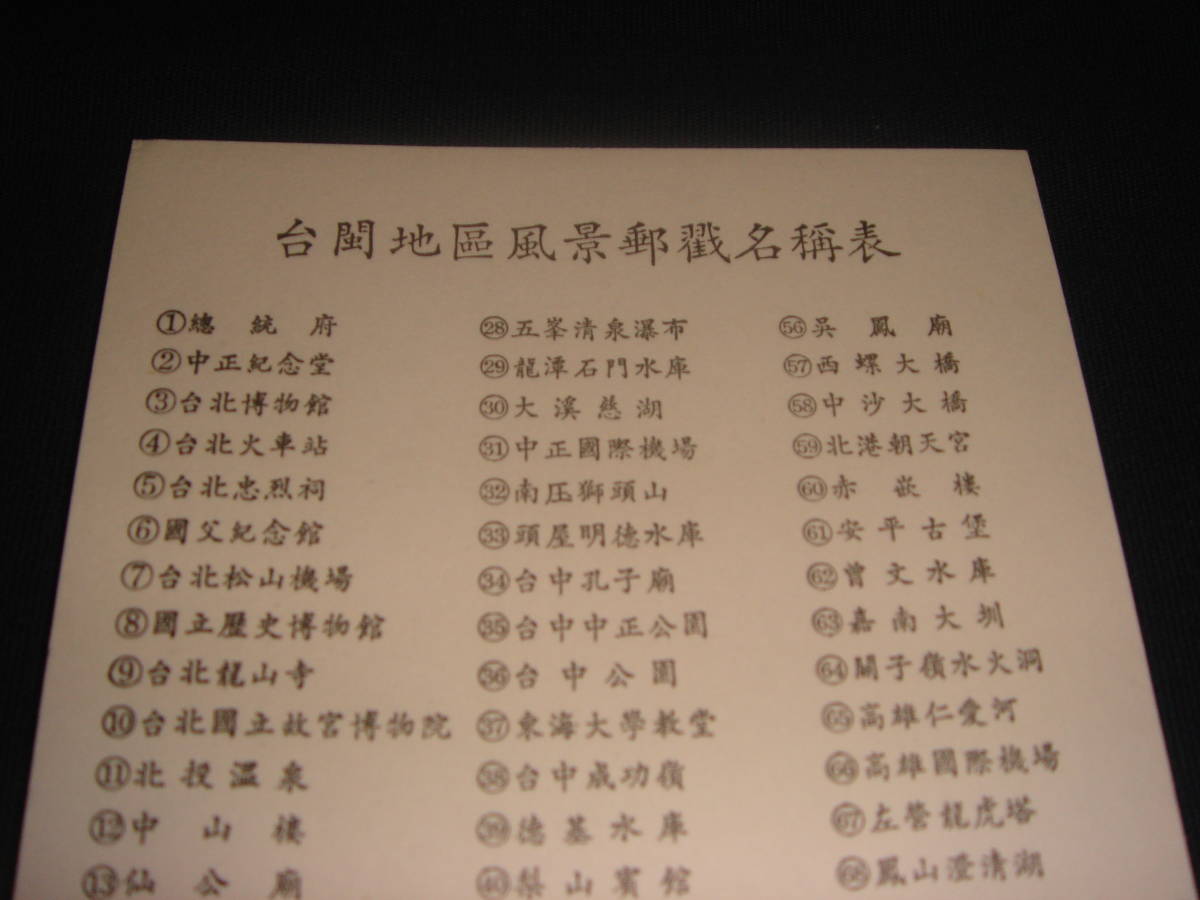 台閩地區風景郵戳名稱表
①總統府
②中正紀念堂
③台北博物館
④台北火車站
⑤台北忠烈祠
⑥國父紀念館
⑦台北松山機場
⑧國立歷史博物館
⑨台北龍山寺
⑩台北國立故宮博物院
⑪北投溫泉
⑫中山樓
⑬仙公廟
㉘五峯清泉瀑布
㉙龍潭石門水庫
㉚大溪慈湖
㉛中正國際機場
㉜南庄獅頭山
㉝頭屋明德水庫
㉞台中孔子廟
㉟台中中正公園
㊱台中公園
㊲東海大學教堂
㊳台中成功嶺
㊴德基水庫
㊵梨山賓館
56吳鳳廟
57西螺大橋
58中沙大橋
59北港朝天宮
60赤嵌樓
61安平古堡
62曾文水庫
63嘉南大圳
64關子嶺水火洞
65高雄仁愛河
66高雄國際機場
67左營龍虎塔
68鳳山澄清湖